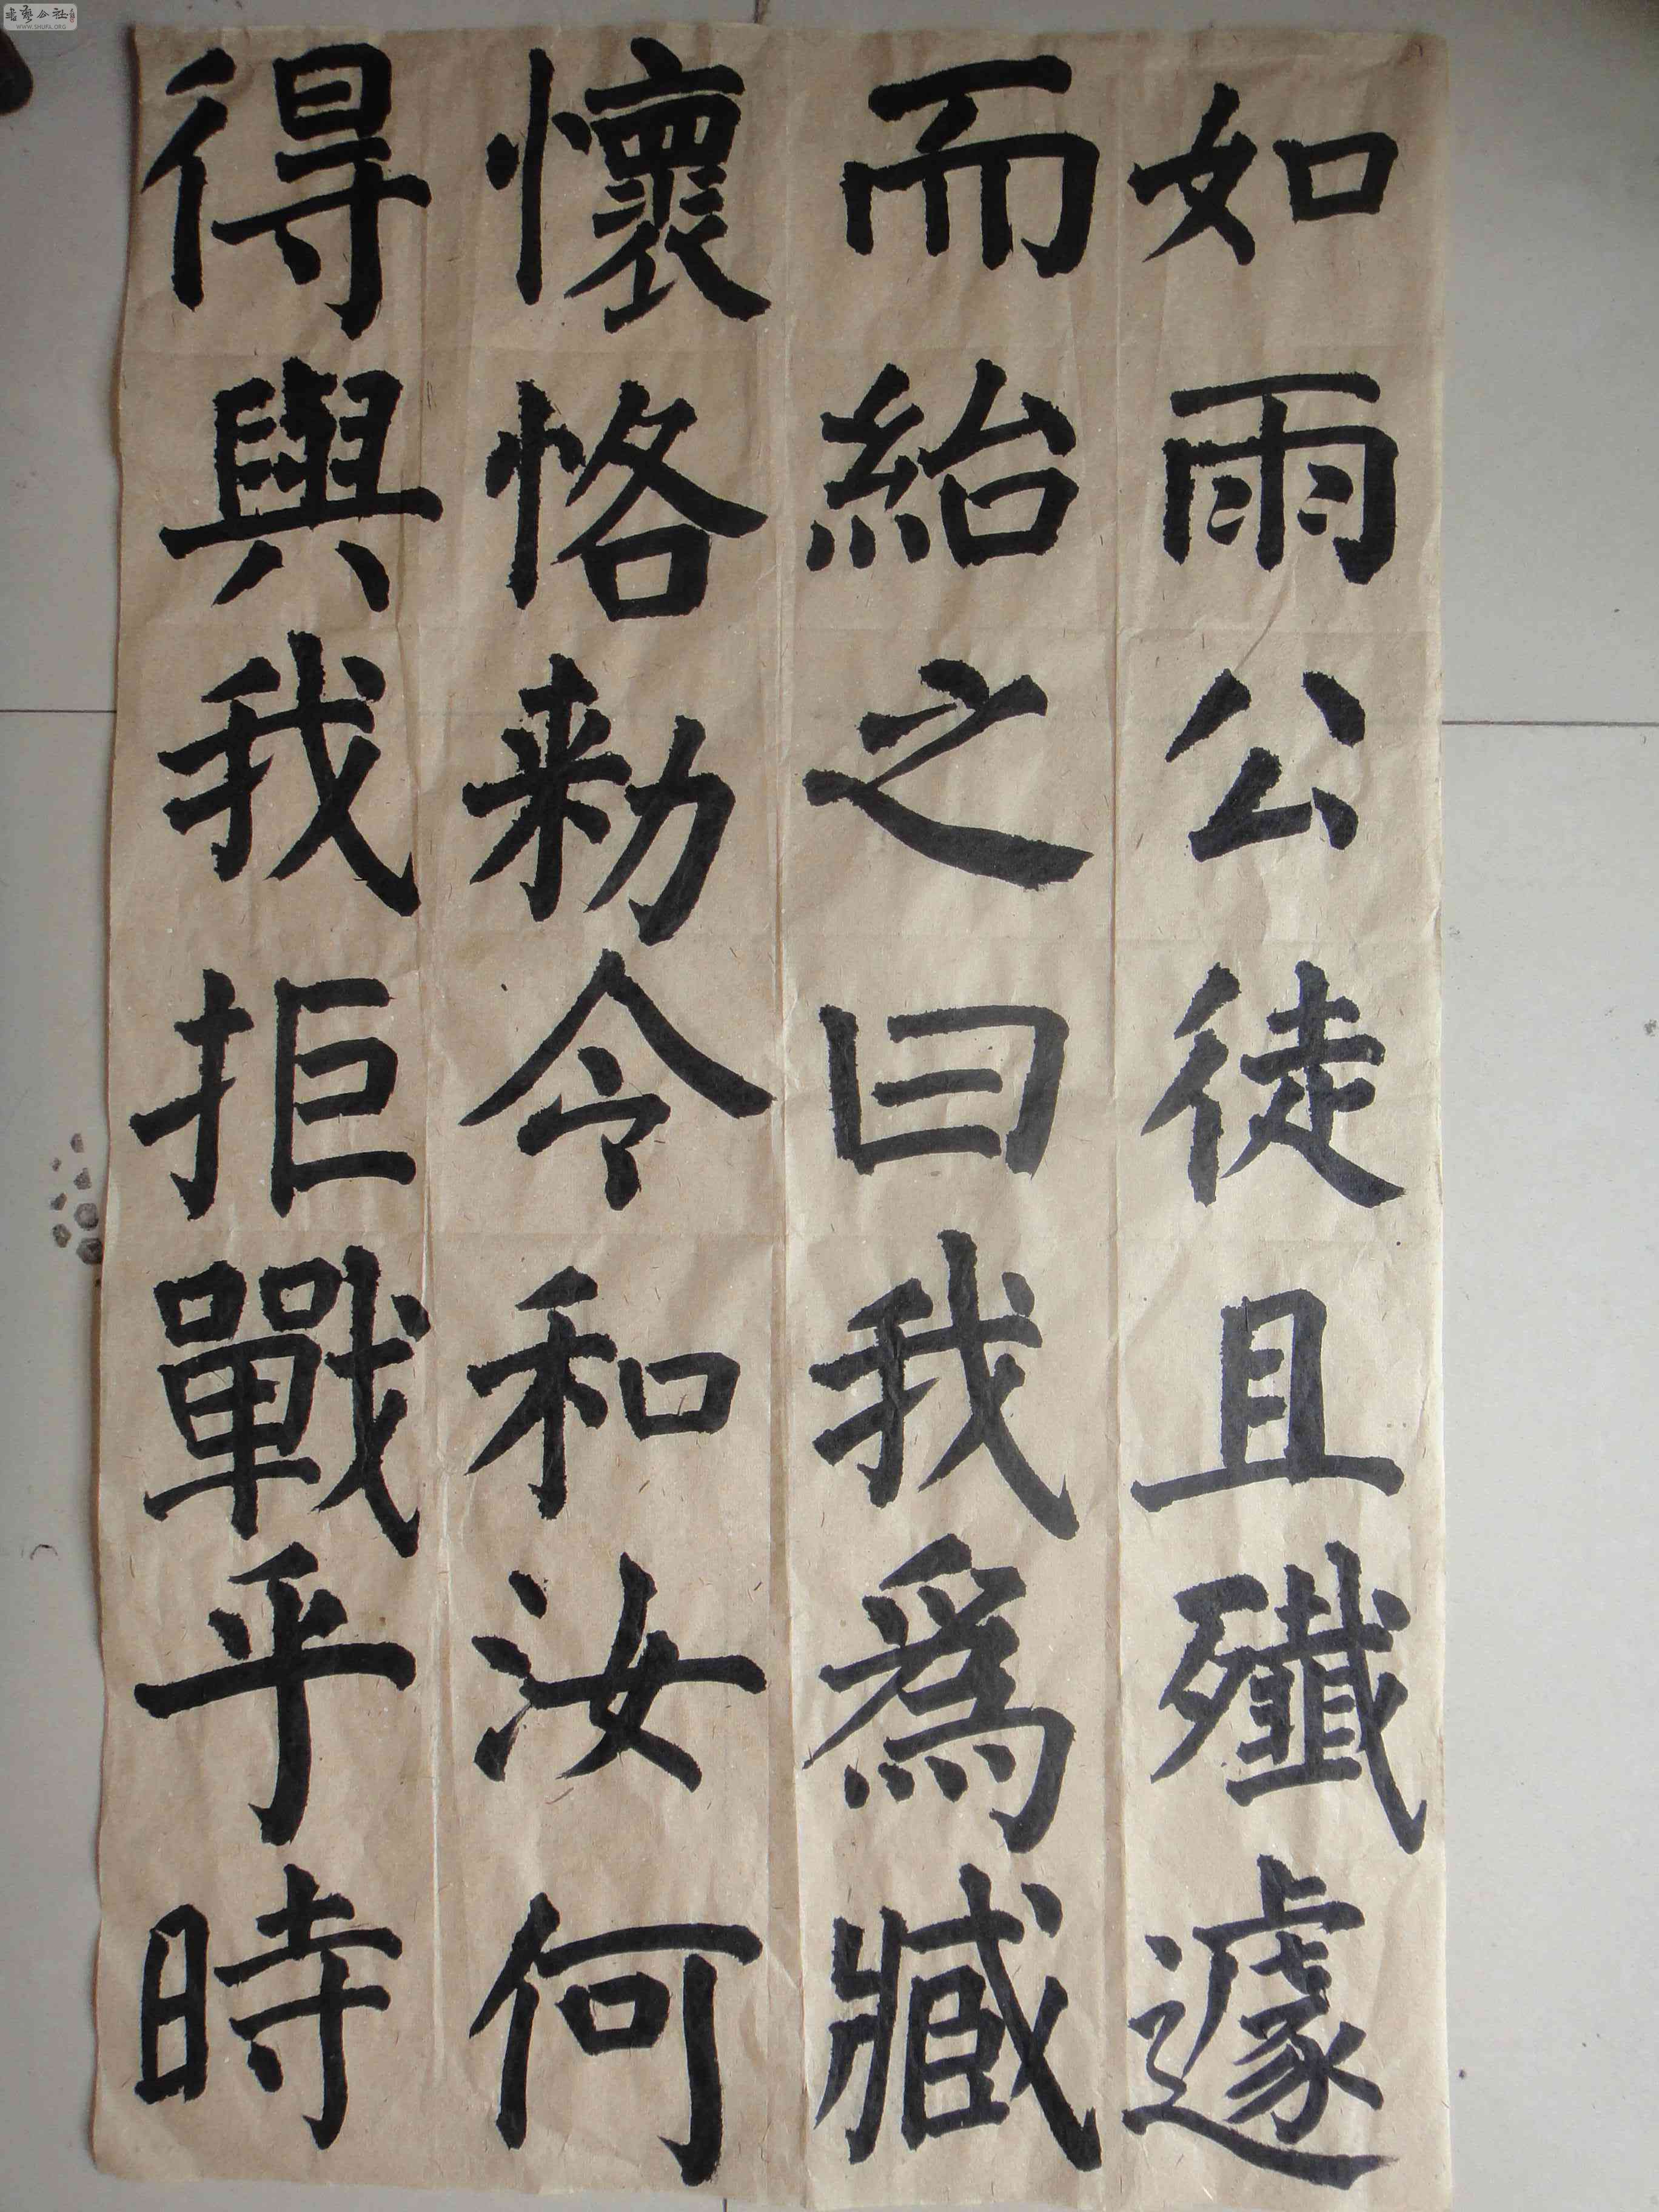 如雨公徒且殲遽
而紿之曰我爲臧
懷恪勑令和汝何
得與我拒戰乎時
WWW.SHUFA.ORG